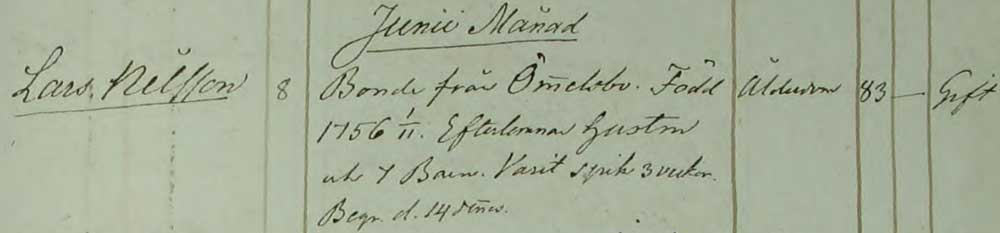 Junii Månad
Lars Nilsson 8 Bonde från Öm̄elsbo. Född Ålderdom 83 — Gift
1756 1/11. Efterlemnar Hustru
och 7 Barn. Varit sjuk 3 veckor.
Begr. d. 14 dennes.